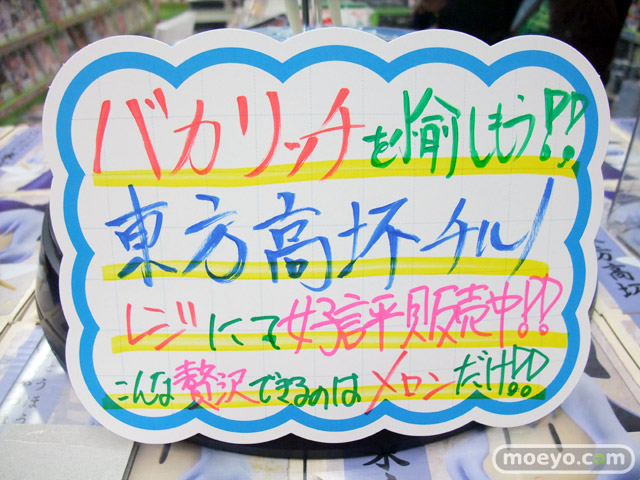 バカリッチを愉しもう!!
東方高坏チルノ
レジにて好評販売中!!
こんな贅沢できるのはメロンだけ!!
moeyo.com